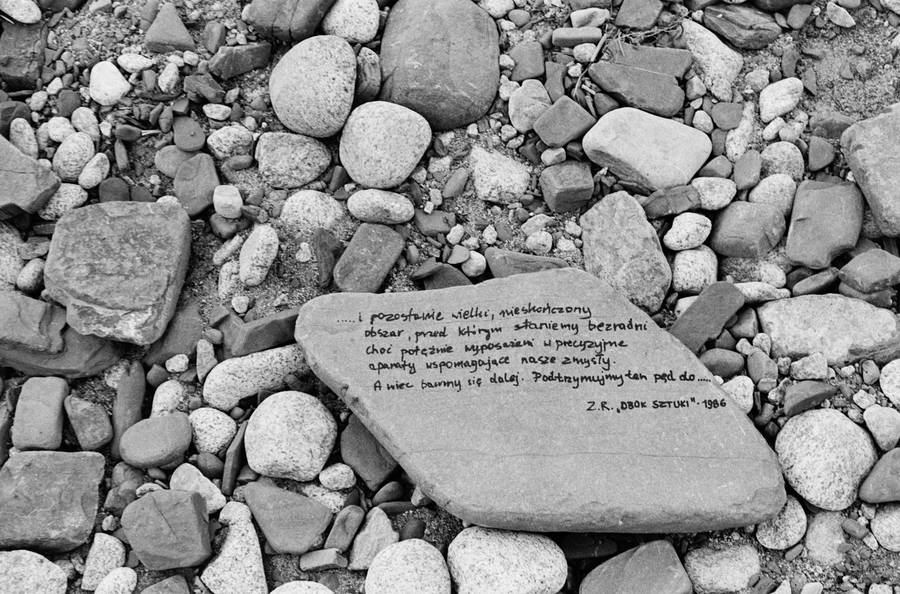 .....i pozostanie wielki, nieskończony
obszar, przed którym staniemy bezradni
choć potężnie wyposażeni w precyzyjne
aparaty wspomagające nasze zmysły.
A więc bawmy się dalej. Podtrzymujmy ten pęd do.....
Z.R. „OBOK SZTUKI". 1986